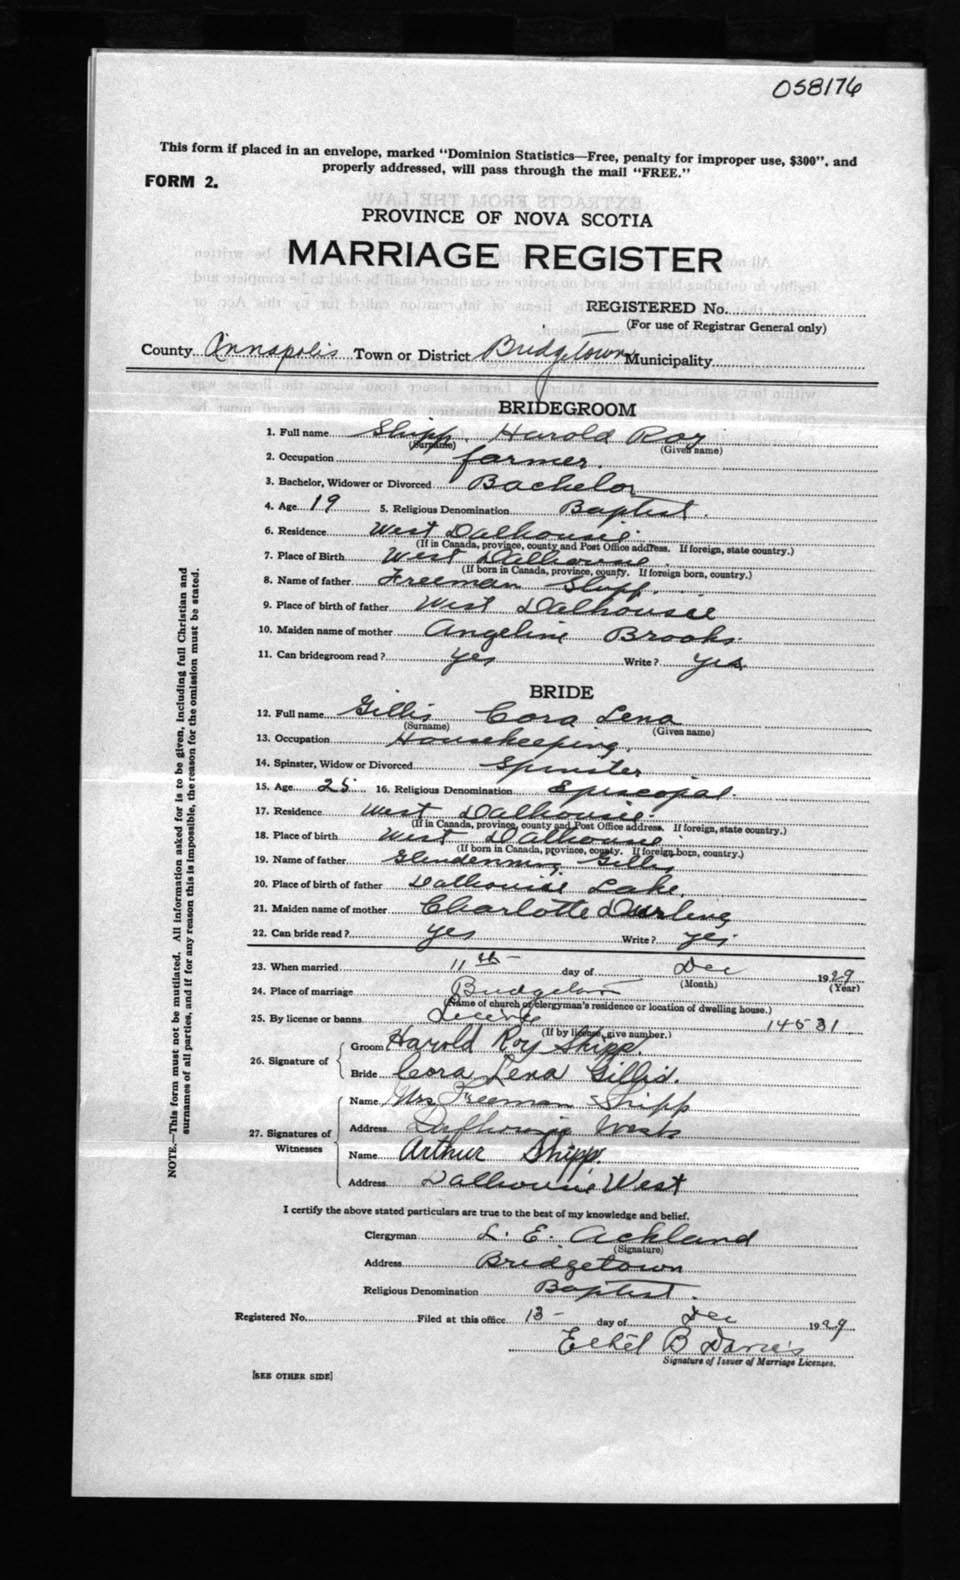 058176
This form if placed in an envelope, marked "Dominion Statistics—Free, penalty for improper use, $300", and
properly addressed, will pass through the mail "FREE."
FORM 2.
PROVINCE OF NOVA SCOTIA
MARRIAGE REGISTER
REGISTERED No.
(For use of Registrar General only)
County Annapolis Town or District Bridgetown Municipality
BRIDEGROOM
1. Full name Shipp, Harold Roy
(Surname) (Given name)
2. Occupation farmer.
3. Bachelor, Widower or Divorced Bachelor
4. Age 19 5. Religious Denomination Baptist.
6. Residence West Dalhousie
(If in Canada, province, county and Post Office address. If foreign, state country.)
7. Place of Birth West Dalhousie.
(If born in Canada, province, county. If foreign born, country.)
8. Name of father Freeman Shipp.
9. Place of birth of father West Dalhousie
10. Maiden name of mother Angeline Brooks.
11. Can bridegroom read? yes Write? yes.
BRIDE
12. Full name Gillis Cora Lena
(Surname) (Given name)
13. Occupation Housekeeping.
14. Spinster, Widow or Divorced Spinster
15. Age 25 16. Religious Denomination Episcopal.
17. Residence West Dalhousie.
(If in Canada, province, county and Post Office address. If foreign, state country.)
18. Place of birth West Dalhousie
(If born in Canada, province, county. If foreign born, country.)
19. Name of father Glendenning Gillis
20. Place of birth of father Dalhousie Lake.
21. Maiden name of mother Charlotte Durling
22. Can bride read? yes Write? yes
23. When married 11th day of Dec 1929
(Month) (Year)
24. Place of marriage Bridgetown
(Name of church or clergyman's residence or location of dwelling house.)
25. By license or banns License 14531
(If by license, give number.)
26. Signature of
Groom Harold Roy Shipp.
Bride Cora Lena Gillis.
27. Signatures of Witnesses
Name Mrs Freeman Shipp
Address Dalhousie West
Name Arthur Shipp.
Address Dalhousie West
I certify the above stated particulars are true to the best of my knowledge and belief.
Clergyman L. E. Ackland
(Signature)
Address Bridgetown
Religious Denomination Baptist.
Registered No. Filed at this office 13 day of Dec 1929
Ethel B Davies
Signature of Issuer of Marriage Licenses.
[SEE OTHER SIDE]
NOTE.—This form must not be mutilated. All information asked for is to be given, including full Christian and
surnames of all parties, and if for any reason this is impossible, the reason for the omission must be stated.